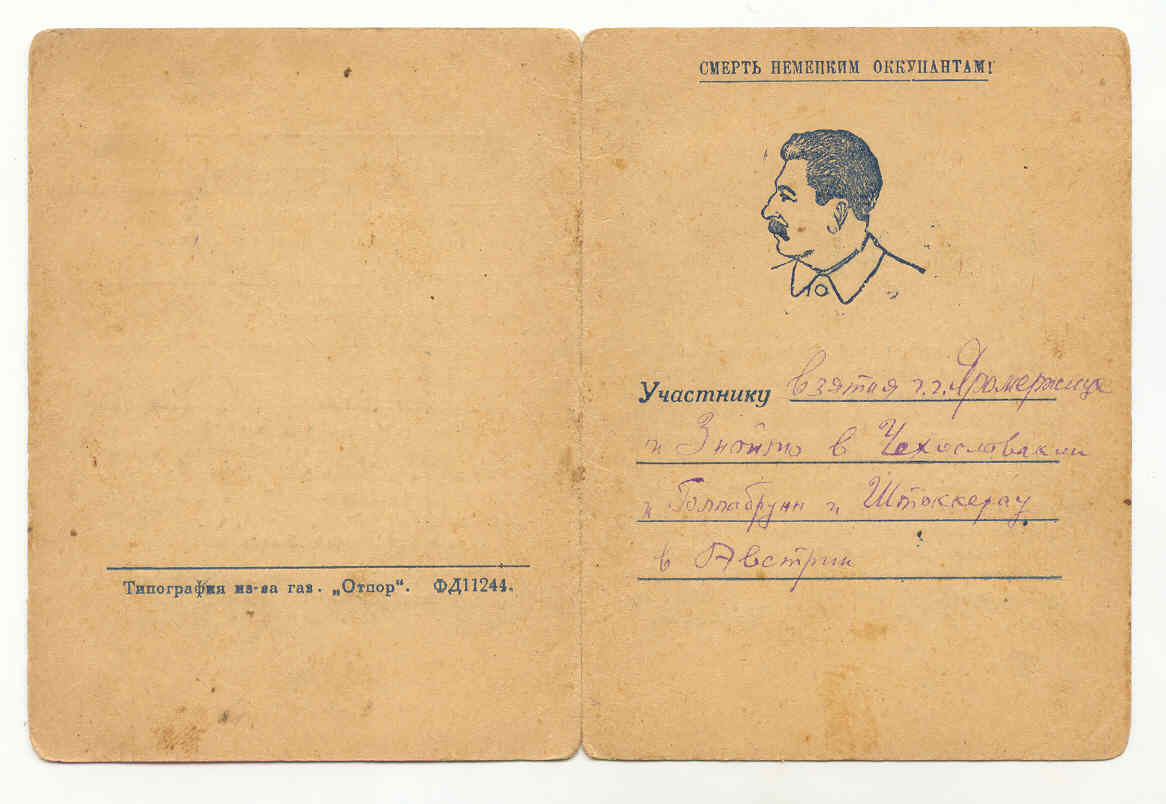 Типография из-ва газ. „Отпор“. ФД11244.
СМЕРТЬ НЕМЕЦКИМ ОККУПАНТАМ!
Участнику взятия г.г. Яромержице
и Знойто в Чехословакии
и Голлабрунн и Штоккерау
в Австрии